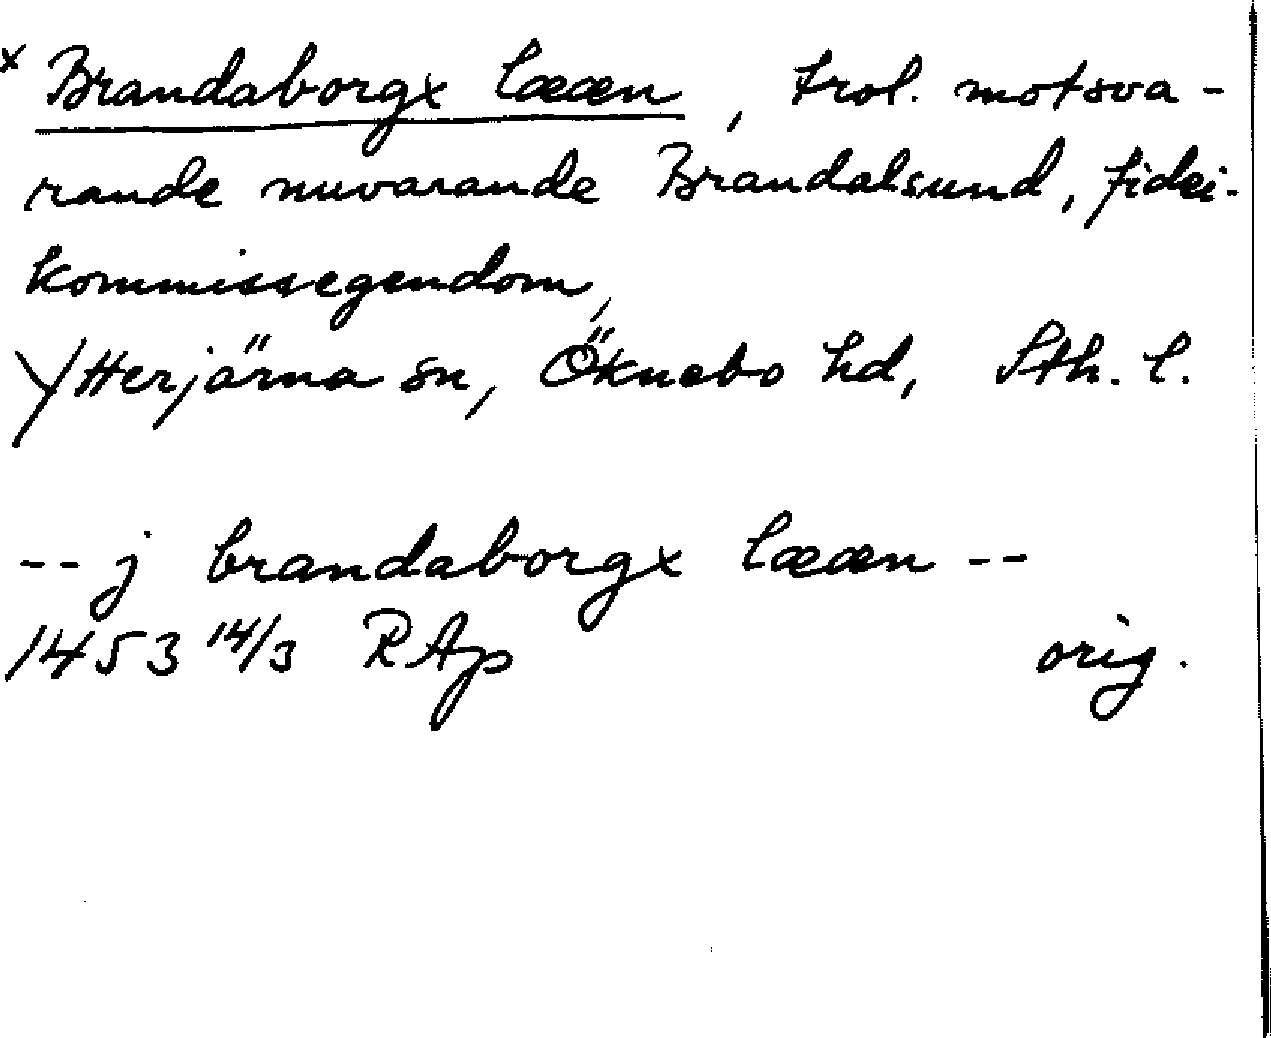 x Brandaborgx læææn, trol. motsva-
rande nuvarande Brandalsund, fidei-
kommissegendom,
Ytterjärna sn, Öknebo hd, Sth. l.
-- j brandaborgx lææn --
1453 14/3 RAp orig.